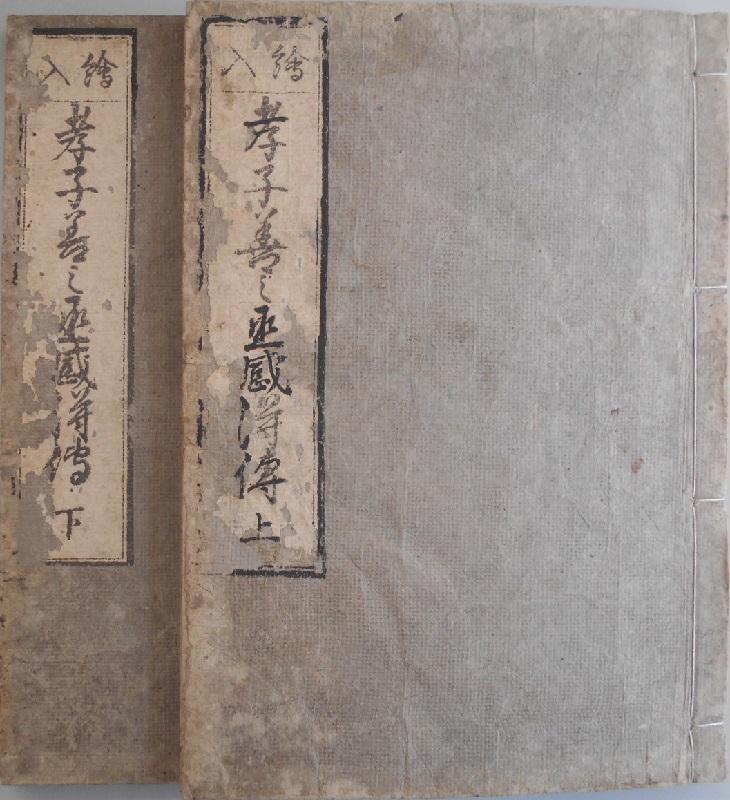 繪入
孝子善之亟感得傳 上
繪入
孝子善之亟感得傳 下